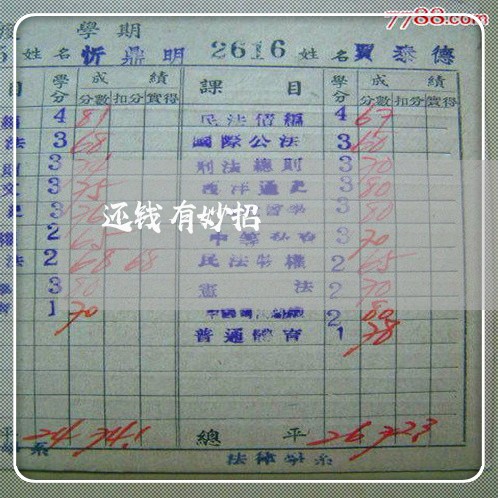 7788.com
學期
5 姓名 忻鼎明 2616 姓名 賈泰德
目 學分 成績 課目 學分 成績
分數 扣分 實得 分數 扣分 實得
4 81 民法債編 4 67
法 3 68 國際公法 3 60
3 刑法總則 3 70
3 75 西洋通史 3 80
3 3 80
还钱有妙招
2 65 3 70
法 2 68 68 民法物權 2 65
3 80 憲法 2 70
1 70 2 80
普通體育 1 78
平 24 74.1 總平 26 72.3
系 法律學系